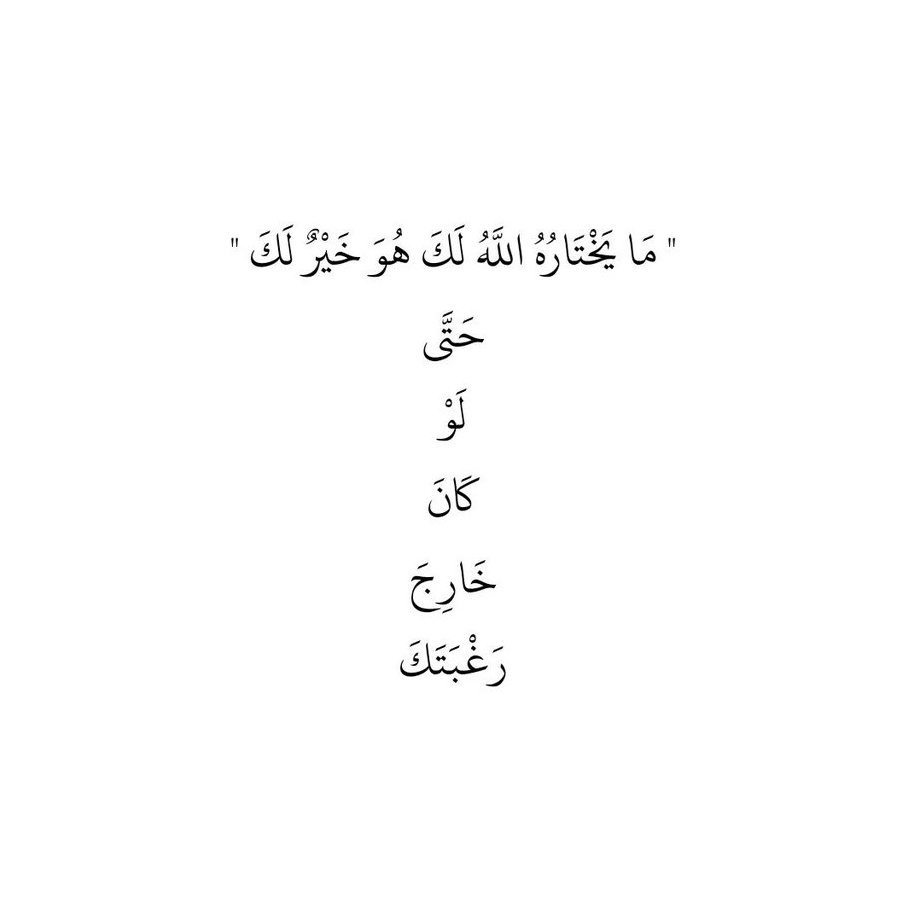 " مَا يَخْتَارُهُ اللَّهُ لَكَ هُوَ خَيْرٌ لَكَ "
حَتَّى
لَوْ
كَانَ
خَارِجَ
رَغْبَتَكَ